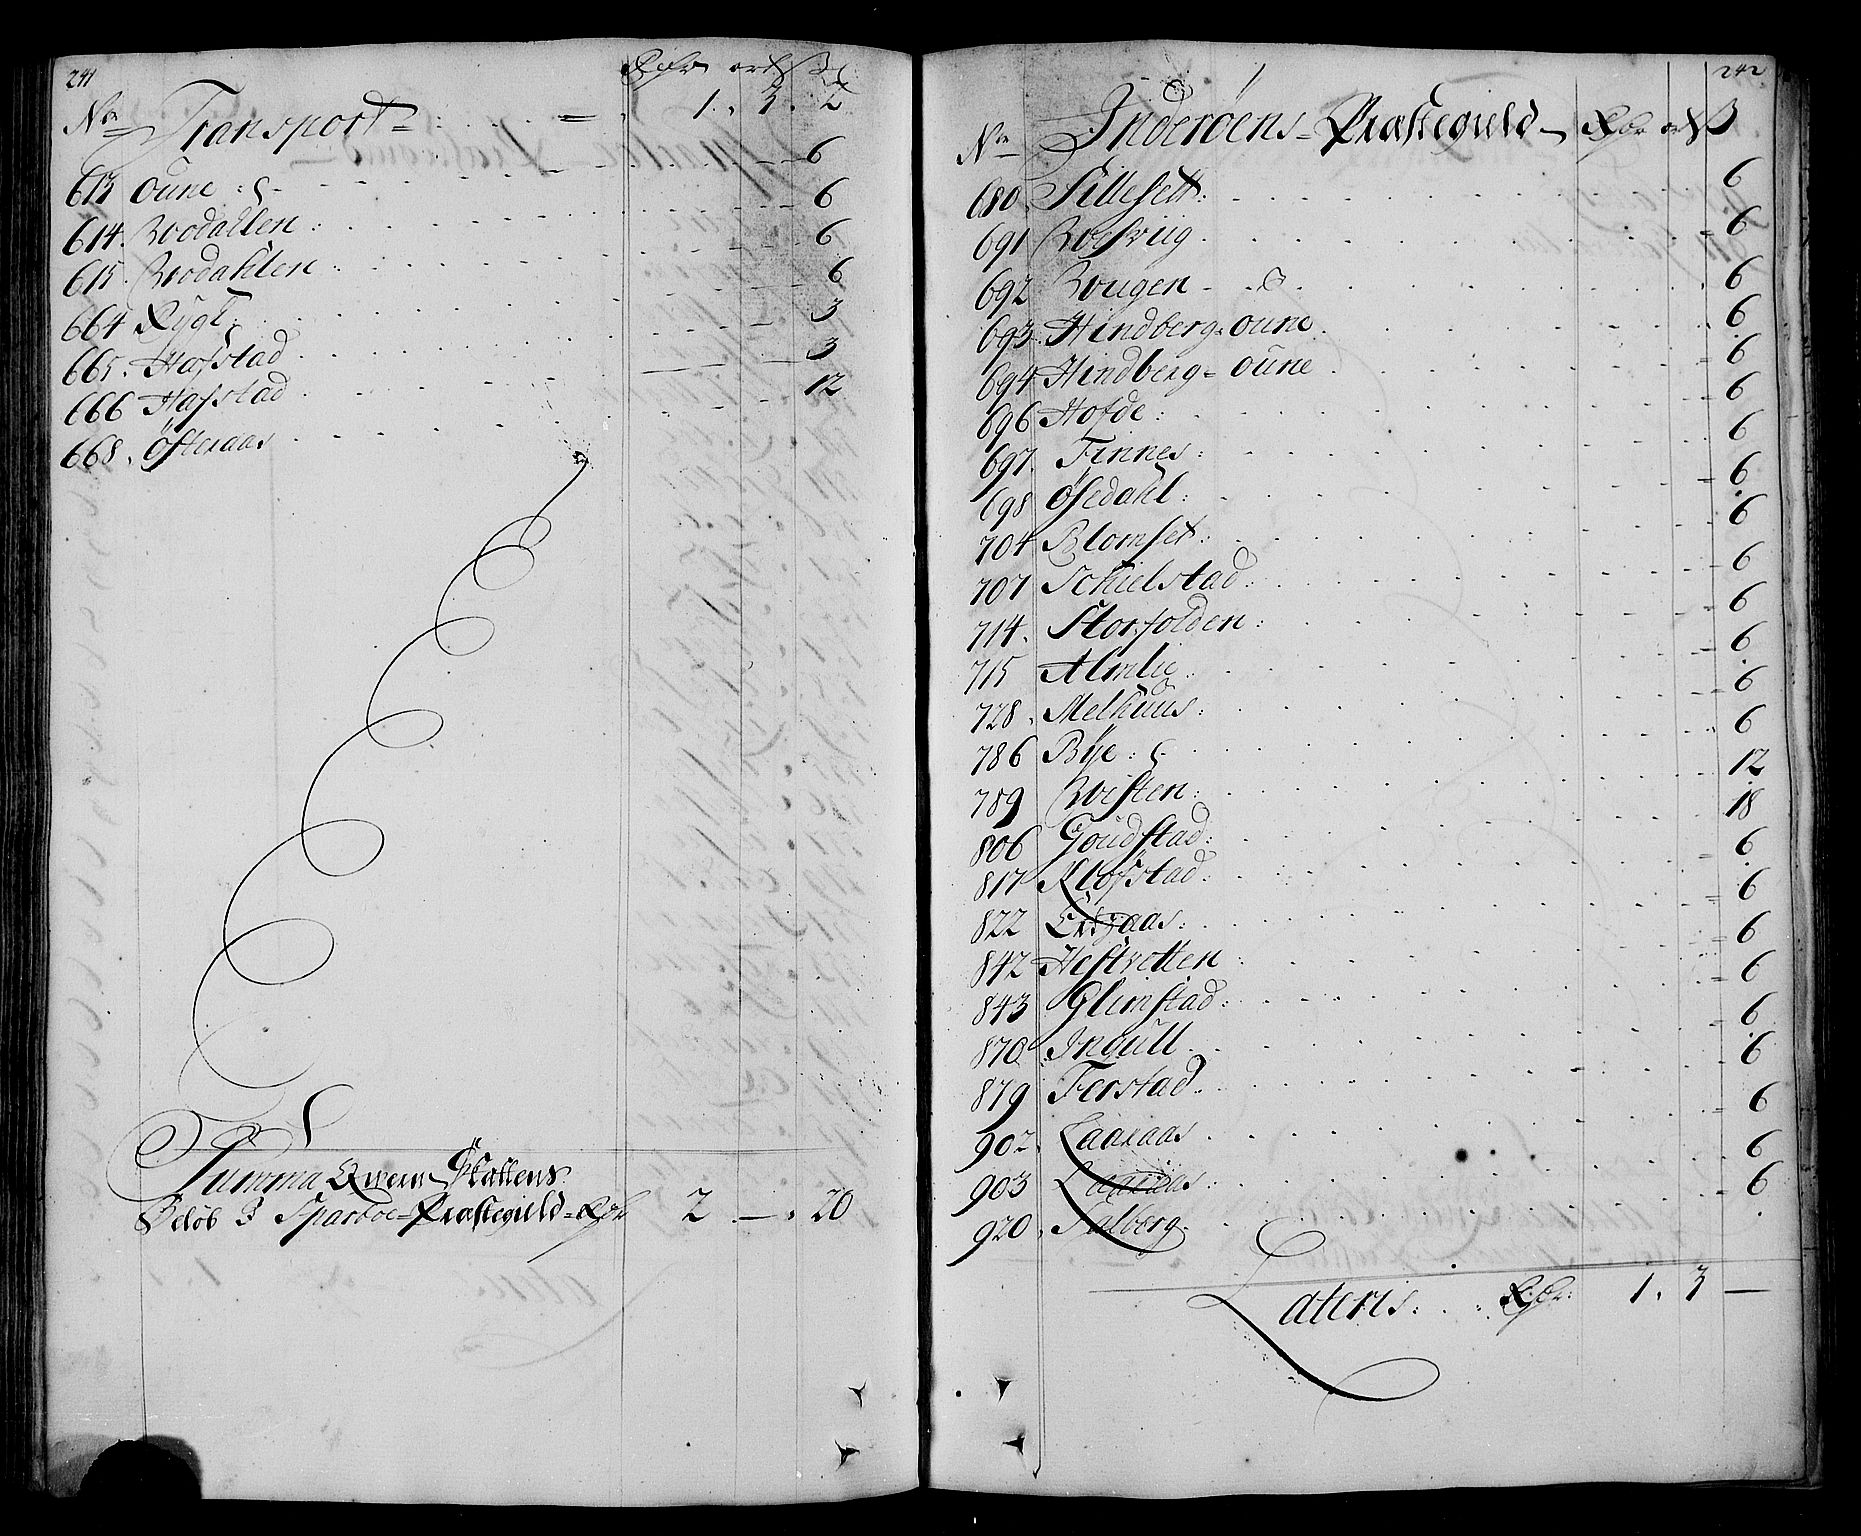 241
Rdr ort ß
No Transport = 1. 3. 2
613 Oune 6
614. Brodallen 6
615. Brodahlen 6
664 Rygg 6
665. Hafstad 3
666 Hafstad 3
668. Østeraas 12
Summa Qvern Skattens
Beløb I Sparboe Præstegield Rdr 2 — 20
242
No Inderøens Præstegield Rdr ort ß
680 Sillesett 6
691 Roesviig 6
692 Vougen 6
693 Hindberg=oune 6
694 Hindberg=oune 6
696 Hofde 6
697. Finnes 6
698 Øsedahl 6
704 Blomset 6
707 Schielstad 6
714. Storfolden 6
715 Almlie 6
728. Melhuus 6
786 Bye 6
789 Roisten 12
806 Goudstad 18
817 Klofstad 6
822 6
842 Hestvotten 6
843 Glimstad 6
870 Ingull 6
879 Forstad 6
902. Laaraas 6
903 Laaraas 6
920. Salberg 6
Lateris Rdr 1. 3 —